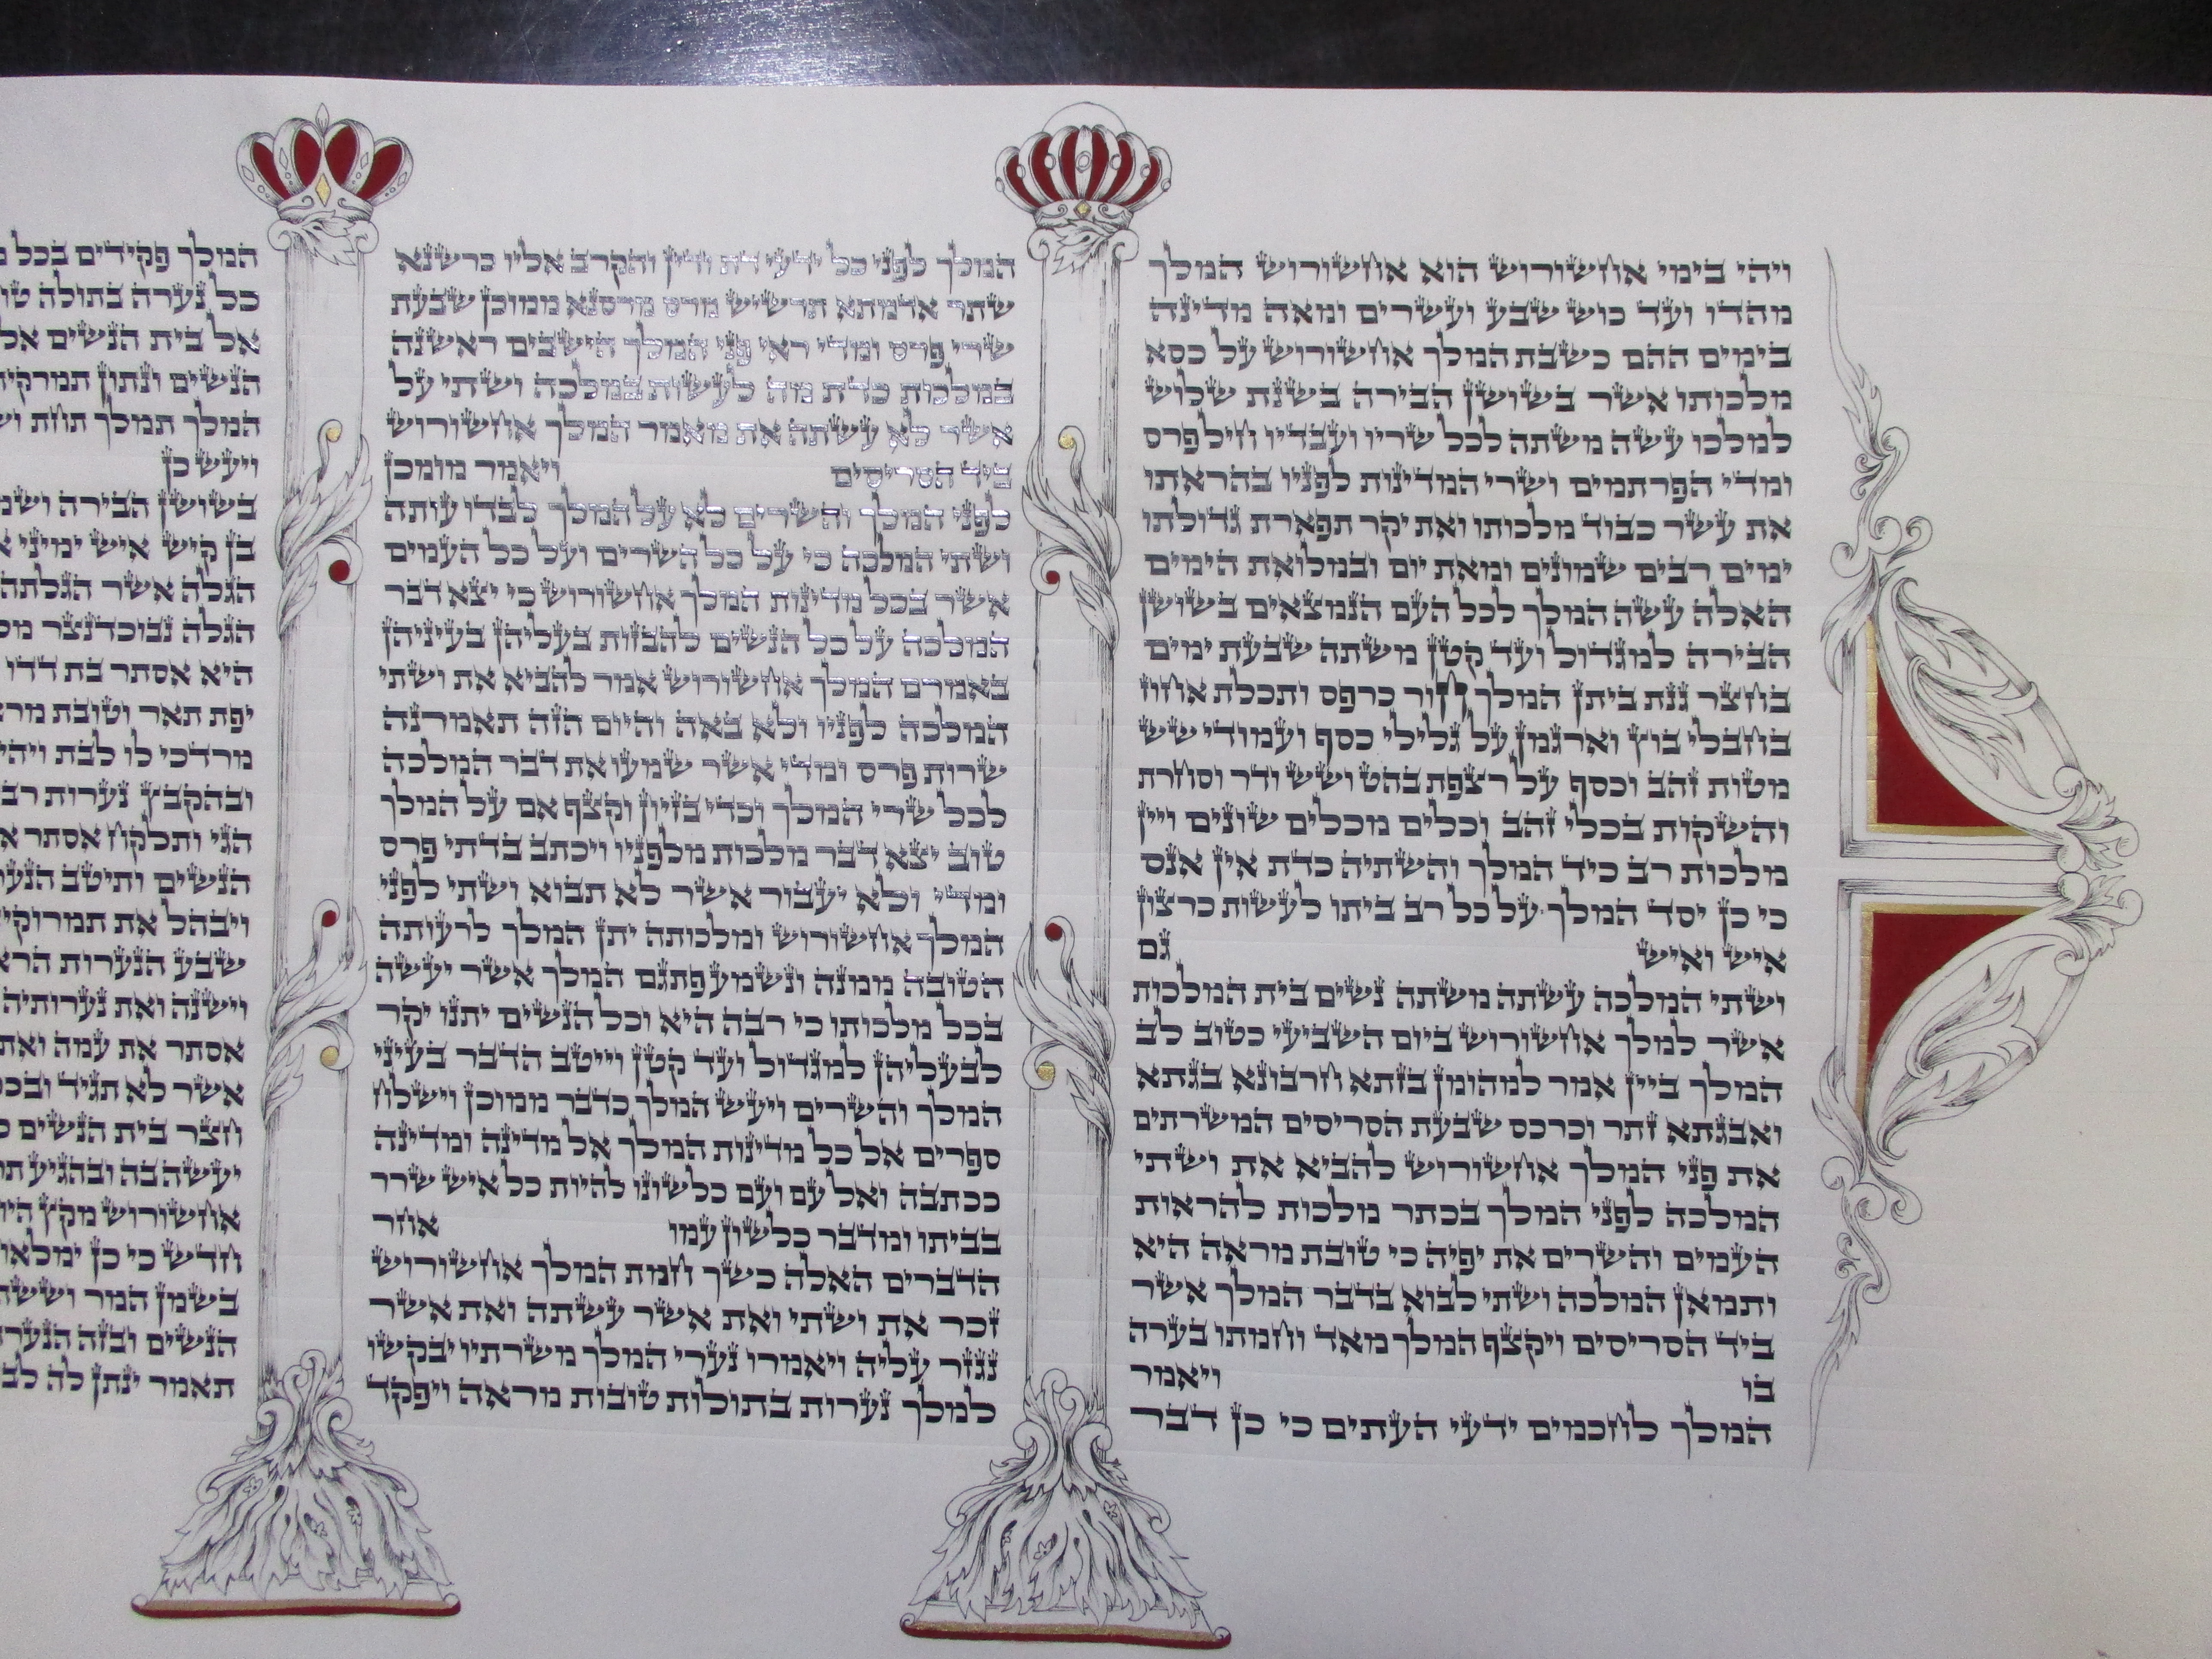 ויהי בימי אחשורוש הוא אחשורוש המלך
מהדו ועד כוש שבע ועשרים ומאה מדינה
בימים ההם כשבת המלך אחשורוש על כסא
מלכותו אשר בשושן הבירה בשנת שלוש
למלכו עשה משתה לכל שריו ועבדיו חיל פרס
ומדי הפרתמים ושרי המדינות לפניו בהראתו
את עשר כבוד מלכותו ואת יקר תפארת גדולתו
ימים רבים שמונים ומאת יום ובמלואת הימים
האלה עשה המלך לכל העם הנמצאים בשושן
הבירה למגדול ועד קטן משתה שבעת ימים
בחצר גנת ביתן המלך חור כרפס ותכלת אחוז
בחבלי בוץ וארגמן על גלילי כסף ועמודי שש
מטות זהב וכסף על רצפת בהט ושש ודר וסחרת
והשקות בכלי זהב וכלים מכלים שונים ויין
מלכות רב כיד המלך והשתיה כדת אין אנס
כי כן יסד המלך על כל רב ביתו לעשות כרצון
איש ואיש גם
ושתי המלכה עשתה משתה נשים בית המלכות
אשר למלך אחשורוש ביום השביעי כטוב לב
המלך ביין אמר למהומן בזתא חרבונא בגתא
ואבגתא זתר וכרכס שבעת הסריסים המשרתים
את פני המלך אחשורוש להביא את ושתי
המלכה לפני המלך בכתר מלכות להראות
העמים והשרים את יפיה כי טובת מראה היא
ותמאן המלכה ושתי לבוא בדבר המלך אשר
ביד הסריסים ויקצף המלך מאד וחמתו בערה
בו ויאמר
המלך לחכמים ידעי העתים כי כן דבר
המלך לפני כל ידעי דת ודין והקרב אליו כרשנא
שתר אדמתא תרשיש מרס מרסנא ממוכן שבעת
שרי פרס ומדי ראי פני המלך הישבים ראשנה
במלכות כדת מה לעשות במלכה ושתי על
אשר לא עשתה את מאמר המלך אחשורוש
ביד הסריסים ויאמר מומכן
לפני המלך והשרים לא על המלך לבדו עותה
ושתי המלכה כי על כל השרים ועל כל העמים
אשר בכל מדינות המלך אחשורוש כי יצא דבר
המלכה על כל הנשים להבזות בעליהן בעיניהן
באמרם המלך אחשורוש אמר להביא את ושתי
המלכה לפניו ולא באה והיום הזה תאמרנה
שרות פרס ומדי אשר שמעו את דבר המלכה
לכל שרי המלך וכדי בזיון וקצף אם על המלך
טוב יצא דבר מלכות מלפניו ויכתב בדתי פרס
ומדי ולא יעבור אשר לא תבוא ושתי לפני
המלך אחשורוש ומלכותה יתן המלך לרעותה
הטובה ממנה ונשמע פתגם המלך אשר יעשה
בכל מלכותו כי רבה היא וכל הנשים יתנו יקר
לבעליהן למגדול ועד קטן וייטב הדבר בעיני
המלך והשרים ויעש המלך כדבר ממוכן וישלח
ספרים אל כל מדינות המלך אל מדינה ומדינה
ככתבה ואל עם ועם כלשונו להיות כל איש שרר
בביתו ומדבר כלשון עמו אחר
הדברים האלה כשך חמת המלך אחשורוש
זכר את ושתי ואת אשר עשתה ואת אשר
נגזר עליה ויאמרו נערי המלך משרתיו יבקשו
למלך נערות בתולות טובות מראה ויפקד
המלך פקידים בכל
כל נערה בתולה
אל בית הנשים אל
הנשים ונתון
המלך תמלך תחת
ויעש כן
בשושן הבירה
בן קיש איש ימיני
הגלה אשר הגלתה
הגלה נבוכדנצר
היא אסתר בת דדו
יפת תאר וטובת
מרדכי לו לבת
ובהקבץ נערות
הגי ותלקח אסתר
הנשים ותיטב
ויבהל את תמרוקיה
שבע הנערות
וישנה ואת נערותיה
אסתר את עמה ואת
אשר לא תגיד
חצר בית הנשים
יעשה בה ובהגיע
אחשורוש מקץ
חדש כי כן ימלאו
בשמן המר
הנשים ובזה
תאמר ינתן לה